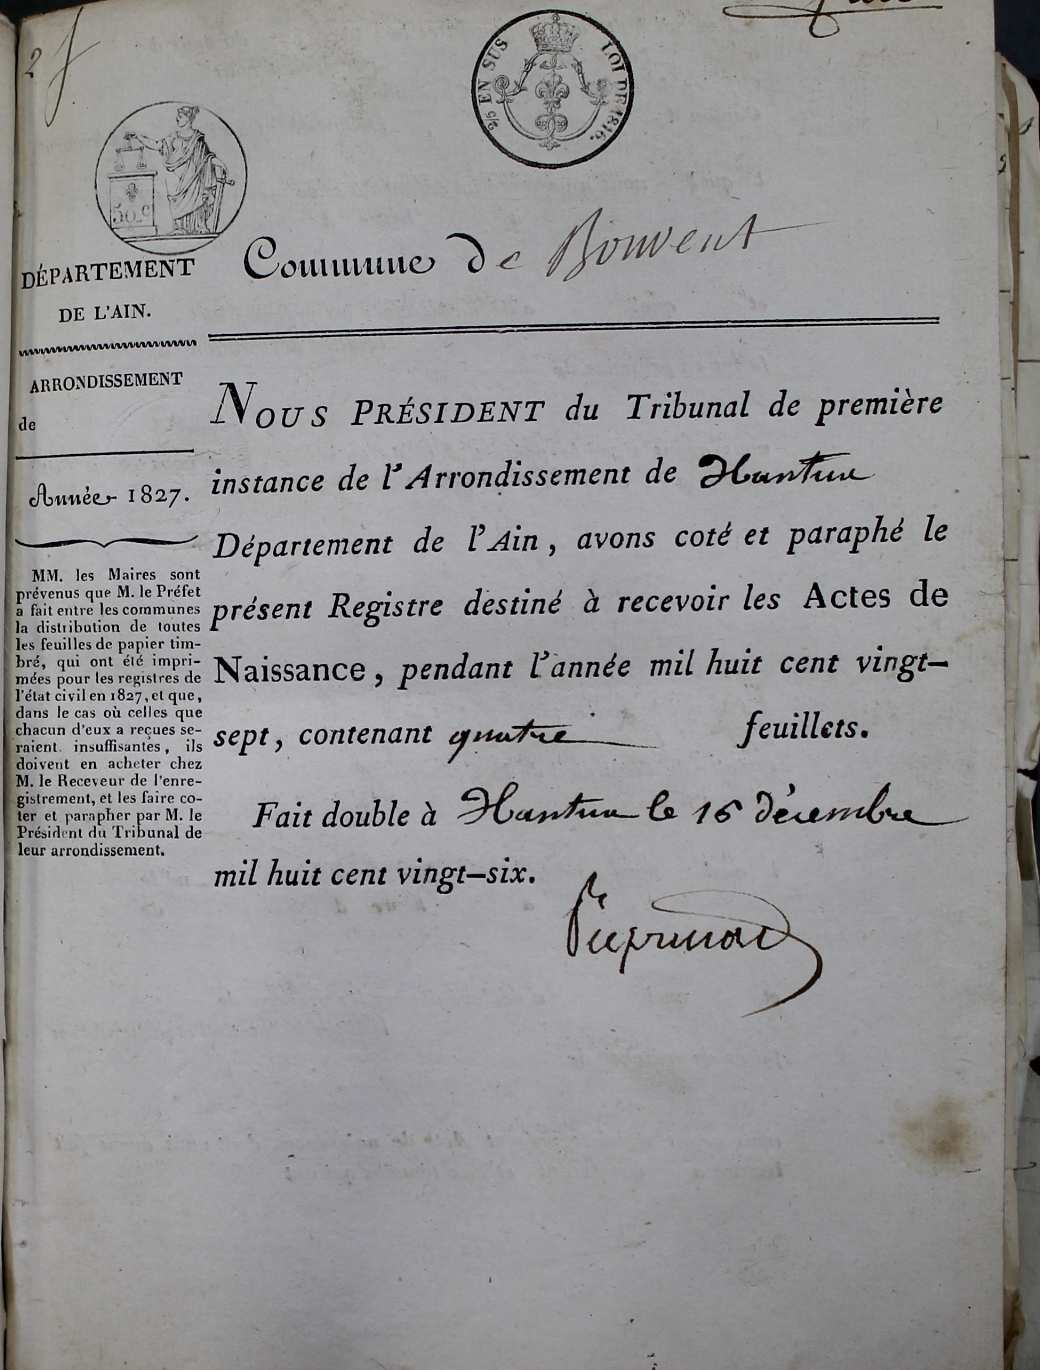 2
2/5 EN SUS LOI DE 1816.
50.c
DÉPARTEMENT
DE L'AIN.
ARRONDISSEMENT
de
Année 1827.
MM. les Maires sont
prévenus que M. le Préfet
a fait entre les communes
la distribution de toutes
les feuilles de papier tim-
bré, qui ont été impri-
mées pour les registres de
l'état civil en 1827, et que,
dans le cas où celles que
chacun d'eux a reçues se-
raient insuffisantes, ils
doivent en acheter chez
M. le Receveur de l'enre-
gistrement, et les faire co-
ter et parapher par M. le
Président du Tribunal de
leur arrondissement.
Commune de Bouvent
NOUS PRÉSIDENT du Tribunal de première
instance de l'Arrondissement de Nantua
Département de l'Ain, avons coté et paraphé le
présent Registre destiné à recevoir les Actes de
Naissance, pendant l'année mil huit cent vingt-
sept, contenant quatre feuillets.
Fait double à Nantua le 16 décembre
mil huit cent vingt-six.